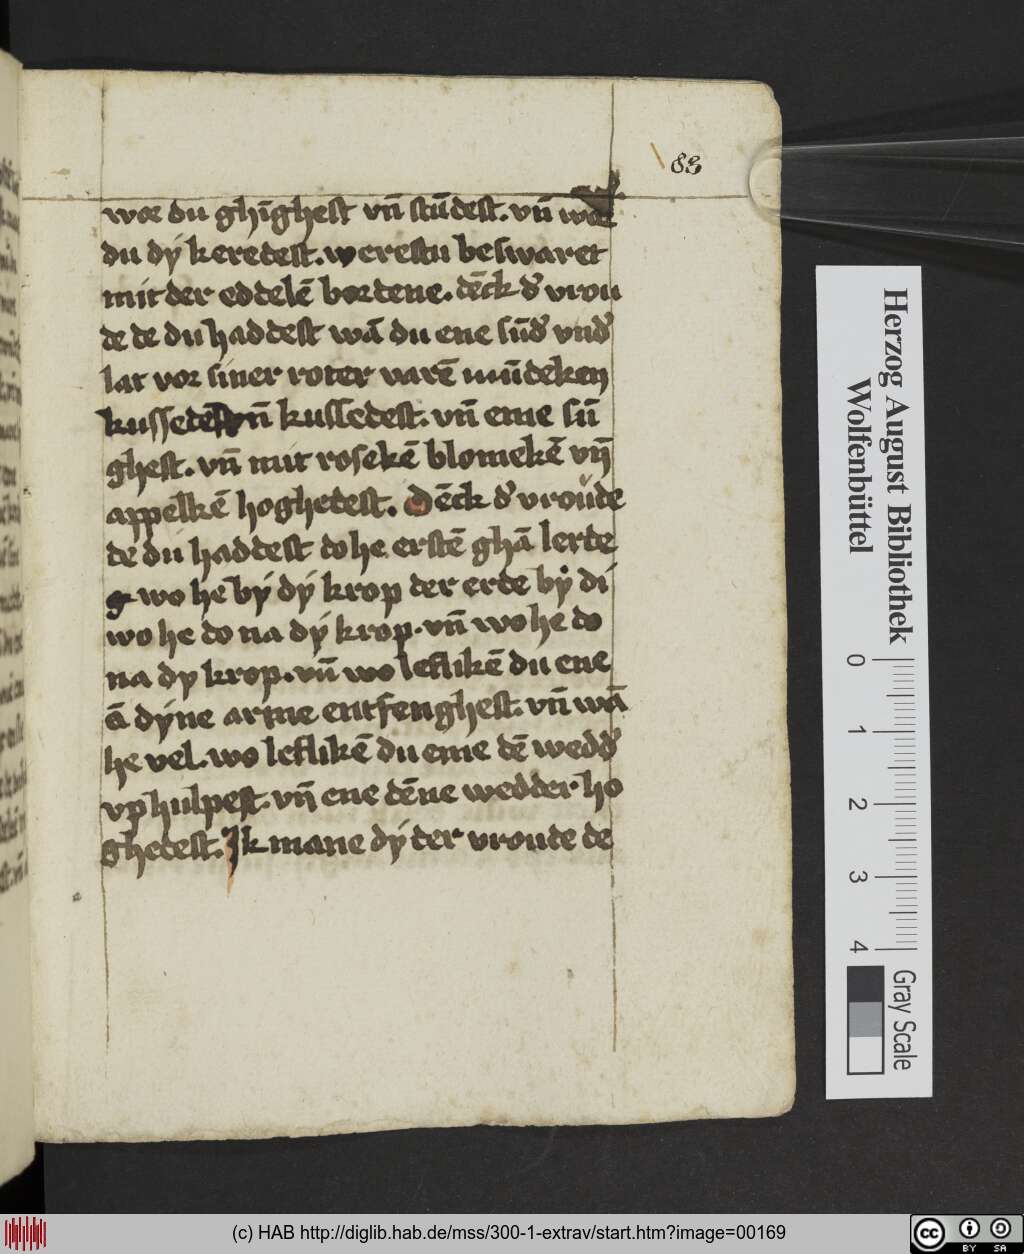 83
wor du ghīghest vn̄ stūdest. vn̄ wor
du dẏ keredest. werestu beswaret
mit der eddelē bordene. dēck dʼ vrou
de de du haddest wā du ene sūdʼ vndʼ
lat vor siner roter varē mūdeken
vn̄ kussedest. vn̄ eme sū
ghest. vn̄ mit rosekē blomekē vn̄
appelkē hoghedest. Dēck dʼ vroude
de du haddest do he erstē ghā lerde
wo he bẏ dẏ krop der erde bẏ di
wo he do na dẏ krop. vn̄ wo he do
na dy krop. vn̄ wo leflikē du ene
ā dẏne arme entfenghest. vn̄ wā
he vel. wo leflikē du eme dē weddʼ
vp hulpest. vn̄ ene dēne wedder ho
ghedest. Ik mane dẏ der vroude de
Herzog August Bibliothek
Wolfenbüttel
0 1 2 3 4
Gray Scale
(c) HAB http://diglib.hab.de/mss/300-1-extrav/start.htm?image=00169
cc BY SA